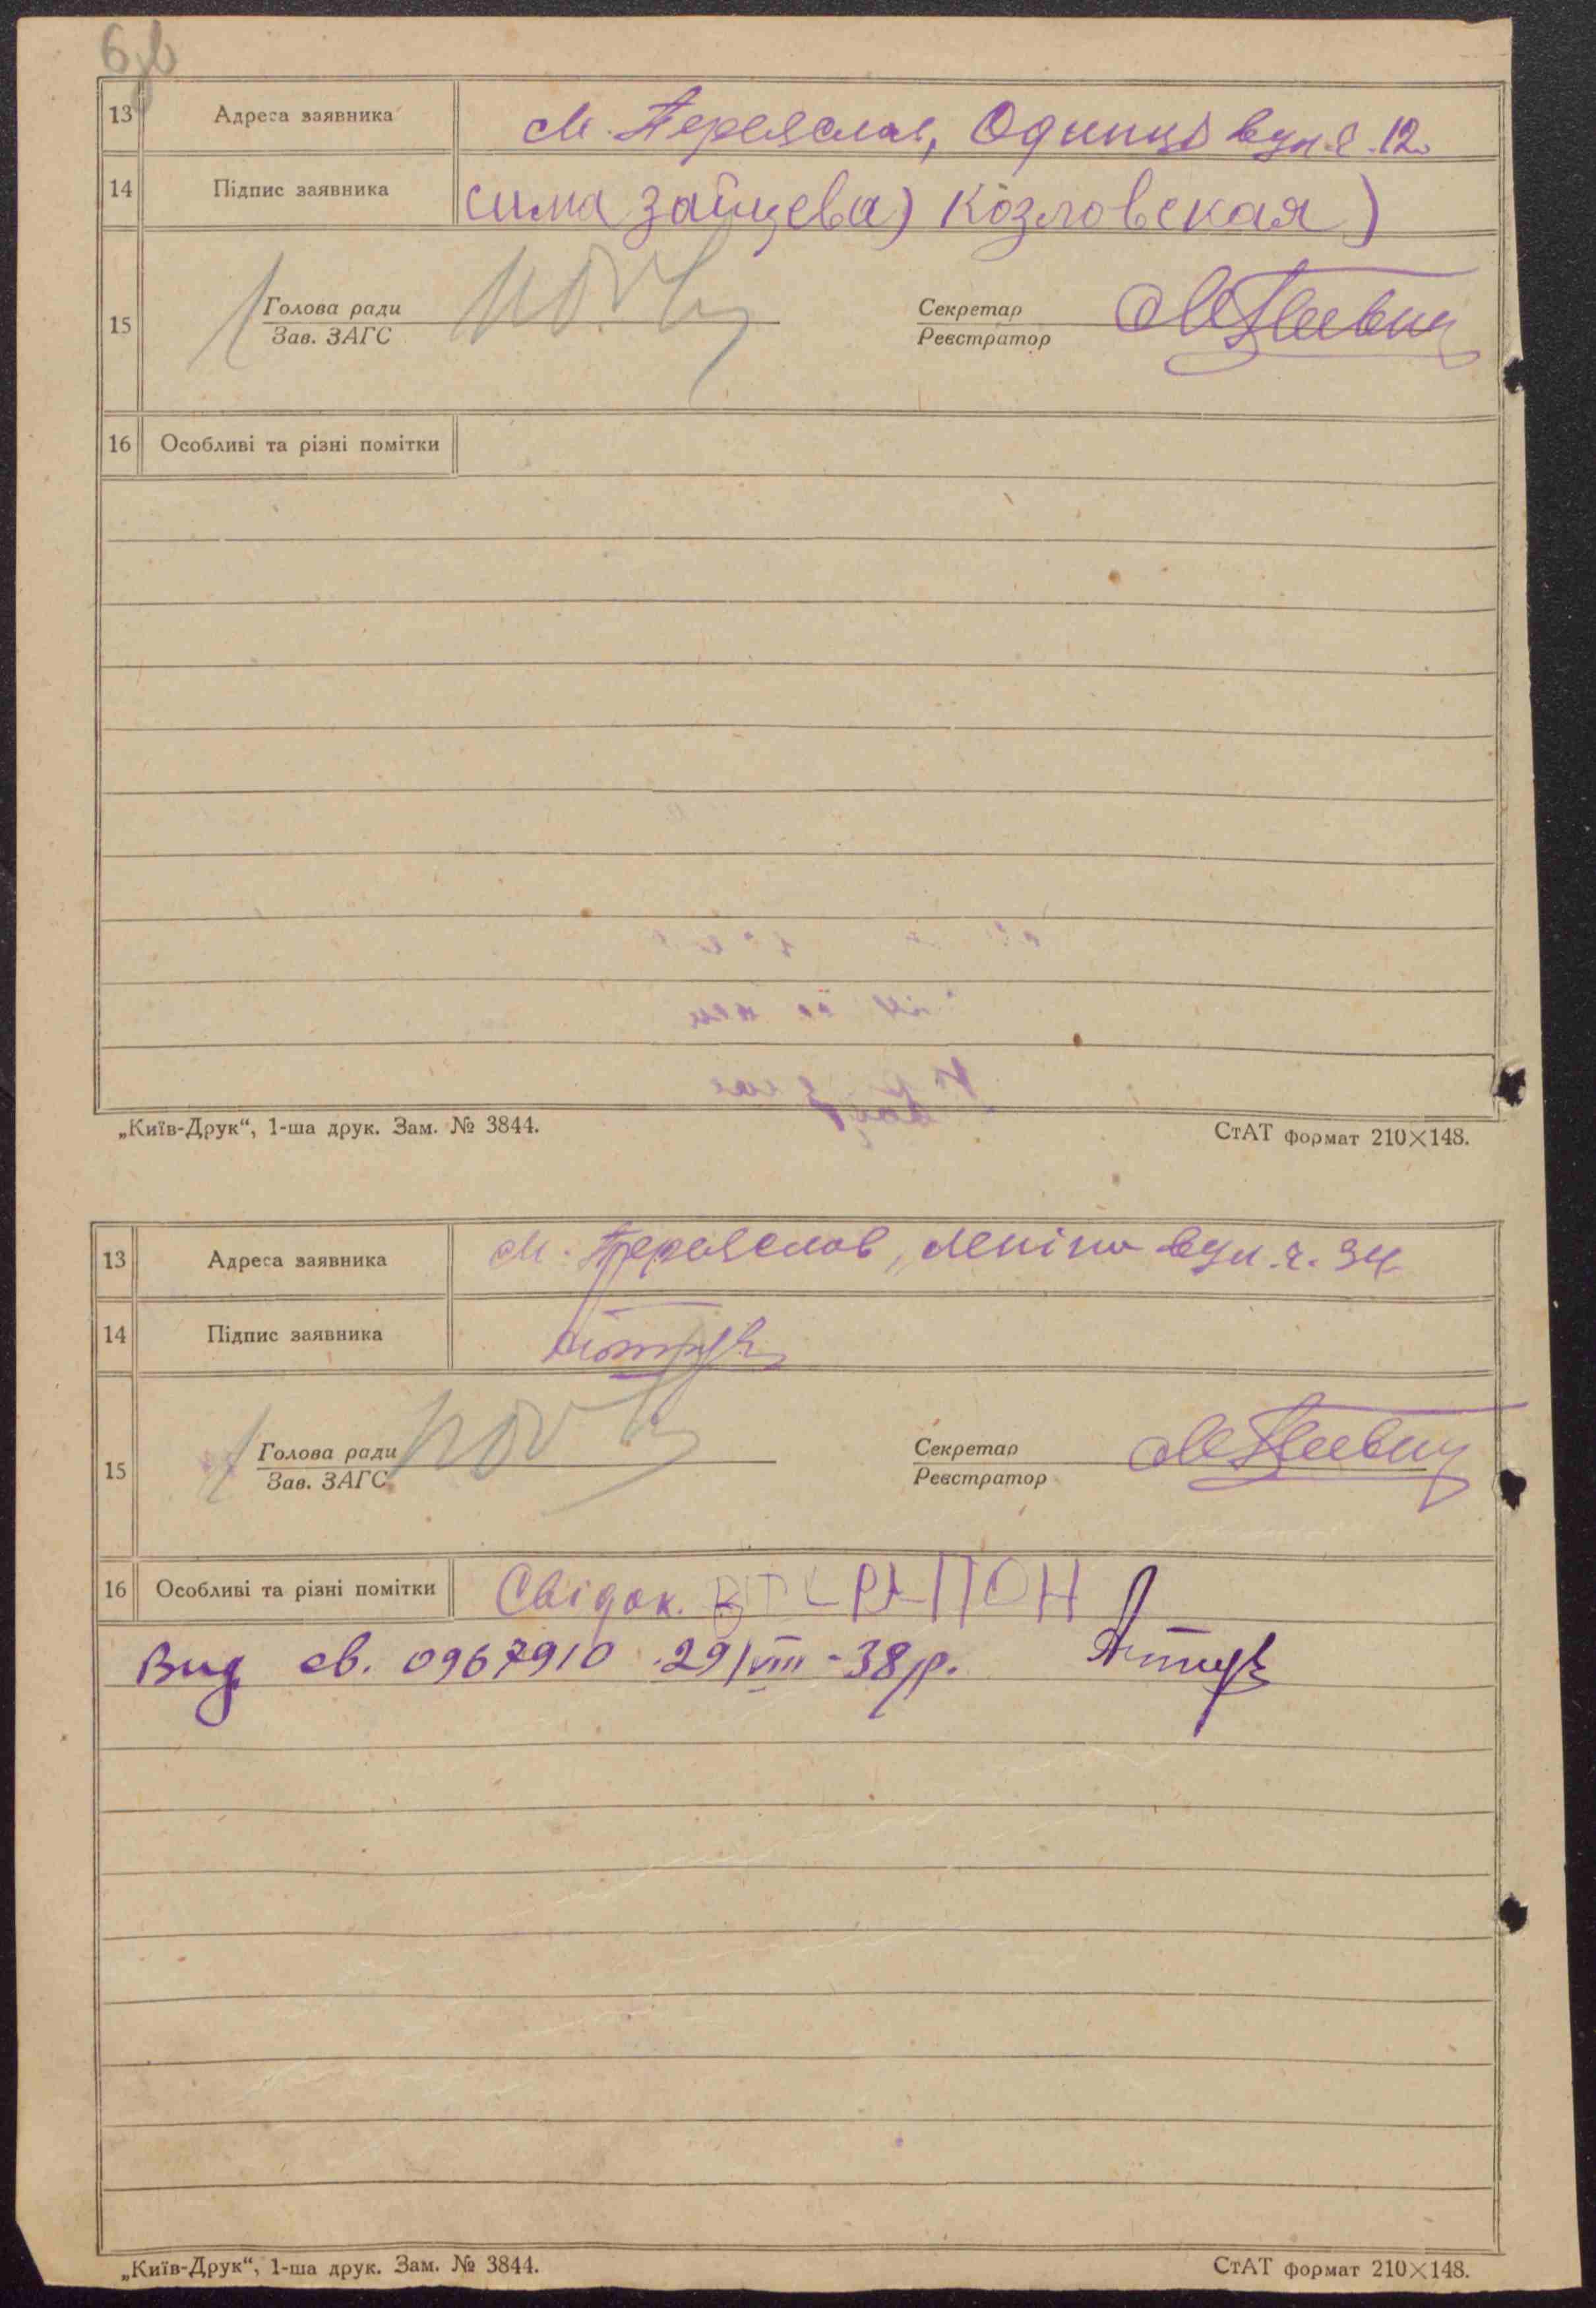 13 Адреса заявника м. Переяслав, Одинця вул. ч. 12.
14 Підпис заявника сима зайцева) козловская)
15 Голова ради Секретар
Зав. ЗАГС Реєстратор
16 Особливі та різні помітки
„Київ-Друк“, 1-ша друк. Зам. № 3844. СтАТ формат 210×148.
13 Адреса заявника м. Переяслов, Леніна вул. ч. 34
14 Підпис заявника
15 Голова ради Секретар
Зав. ЗАГС Реєстратор
16 Особливі та різні помітки Свідок.
Вид св. 0967910 29/VIII-38 р.
„Київ-Друк“, 1-ша друк. Зам. № 3844. СтАТ формат 210×148.